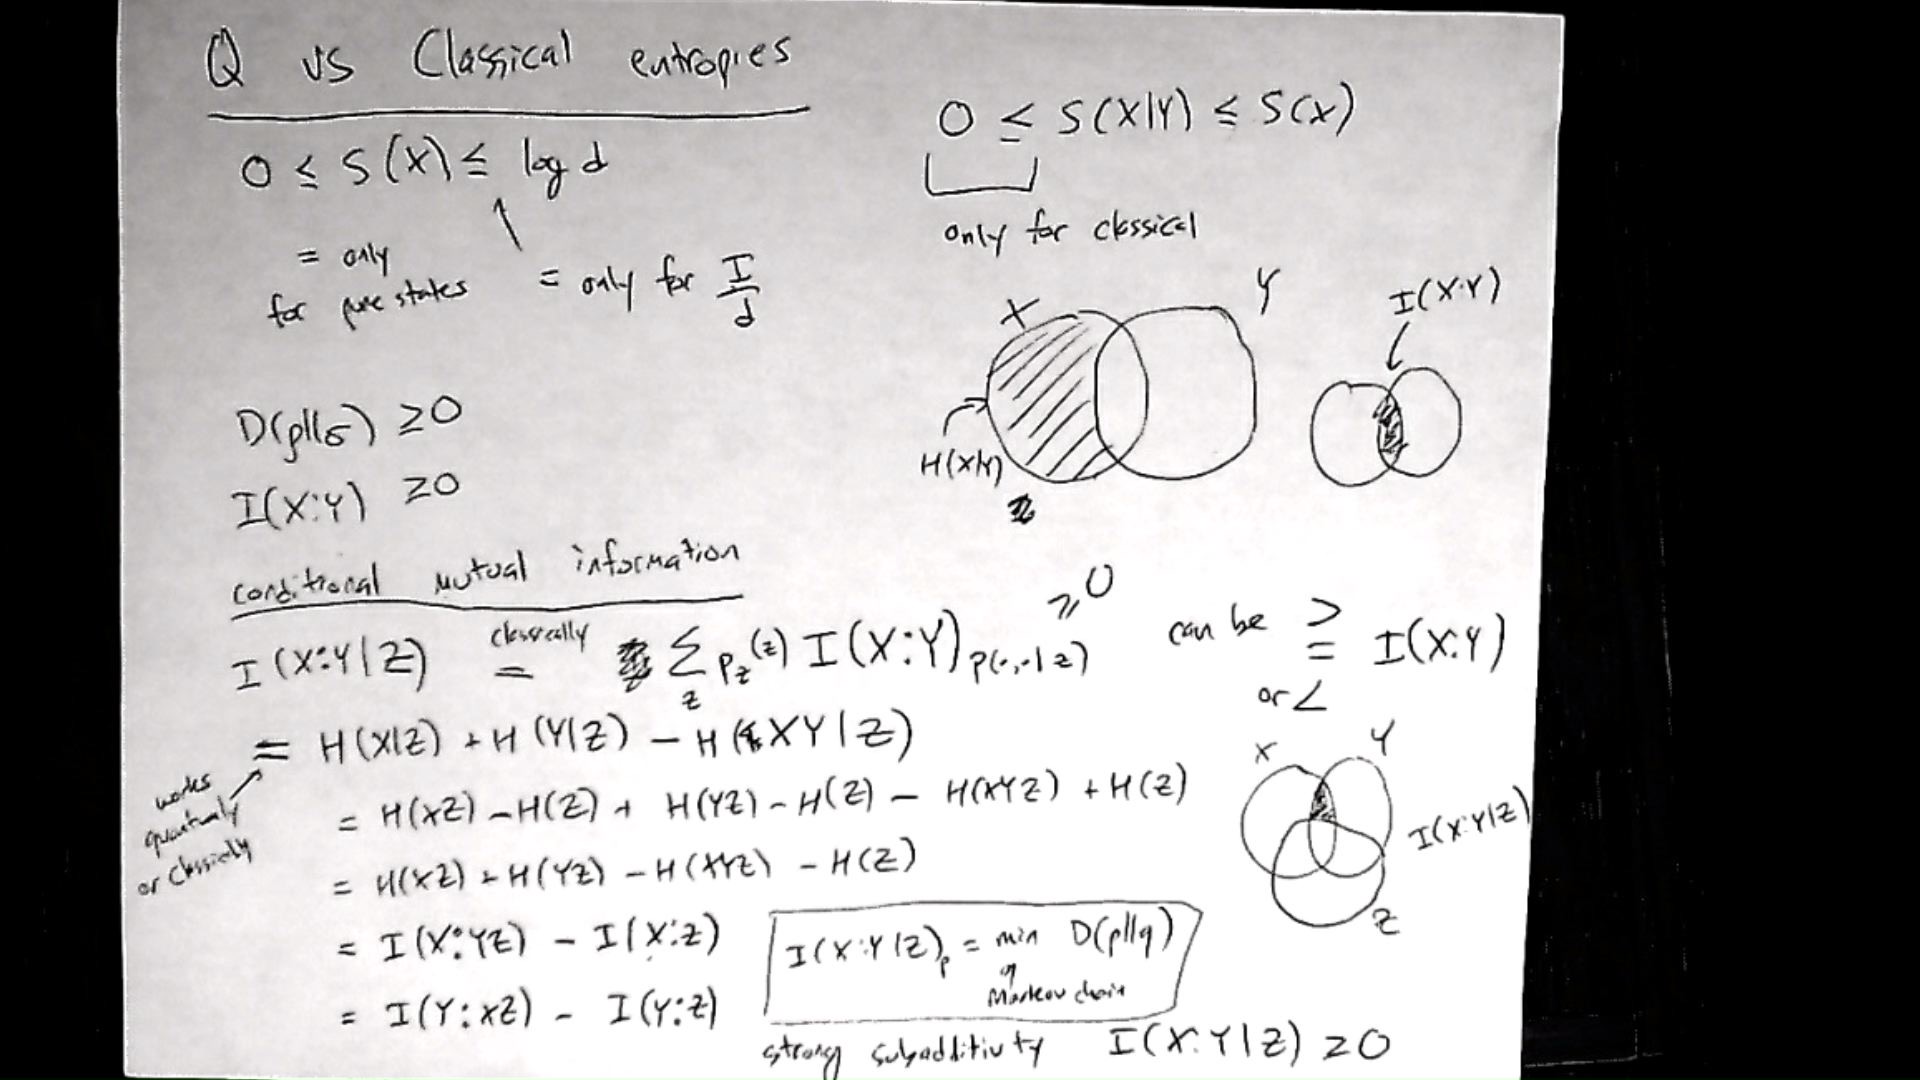 Q vs Classical entropies
0 ≤ S(X) ≤ log d
= only
for pure states
= only for I/d
0 ≤ S(X|Y) ≤ S(X)
only for classical
X
Y
H(X|Y)
I(X:Y)
D(ρ||σ) ≥ 0
I(X:Y) ≥ 0
conditional mutual information
I(X:Y|Z) classically = ∑_z p_z(z) I(X:Y)_{p(·,·|z)} ≥ 0
can be > = or < I(X:Y)
= H(X|Z) + H(Y|Z) - H(XY|Z)
works
quantumly
or classically
= H(XZ) - H(Z) + H(YZ) - H(Z) - H(XYZ) + H(Z)
= H(XZ) + H(YZ) - H(XYZ) - H(Z)
= I(X:YZ) - I(X:Z)
= I(Y:XZ) - I(Y:Z)
X
Y
Z
I(X:Y|Z)
I(X:Y|Z)_p = min D(p||q)
q
Markov chain
strong subadditivity I(X:Y|Z) ≥ 0